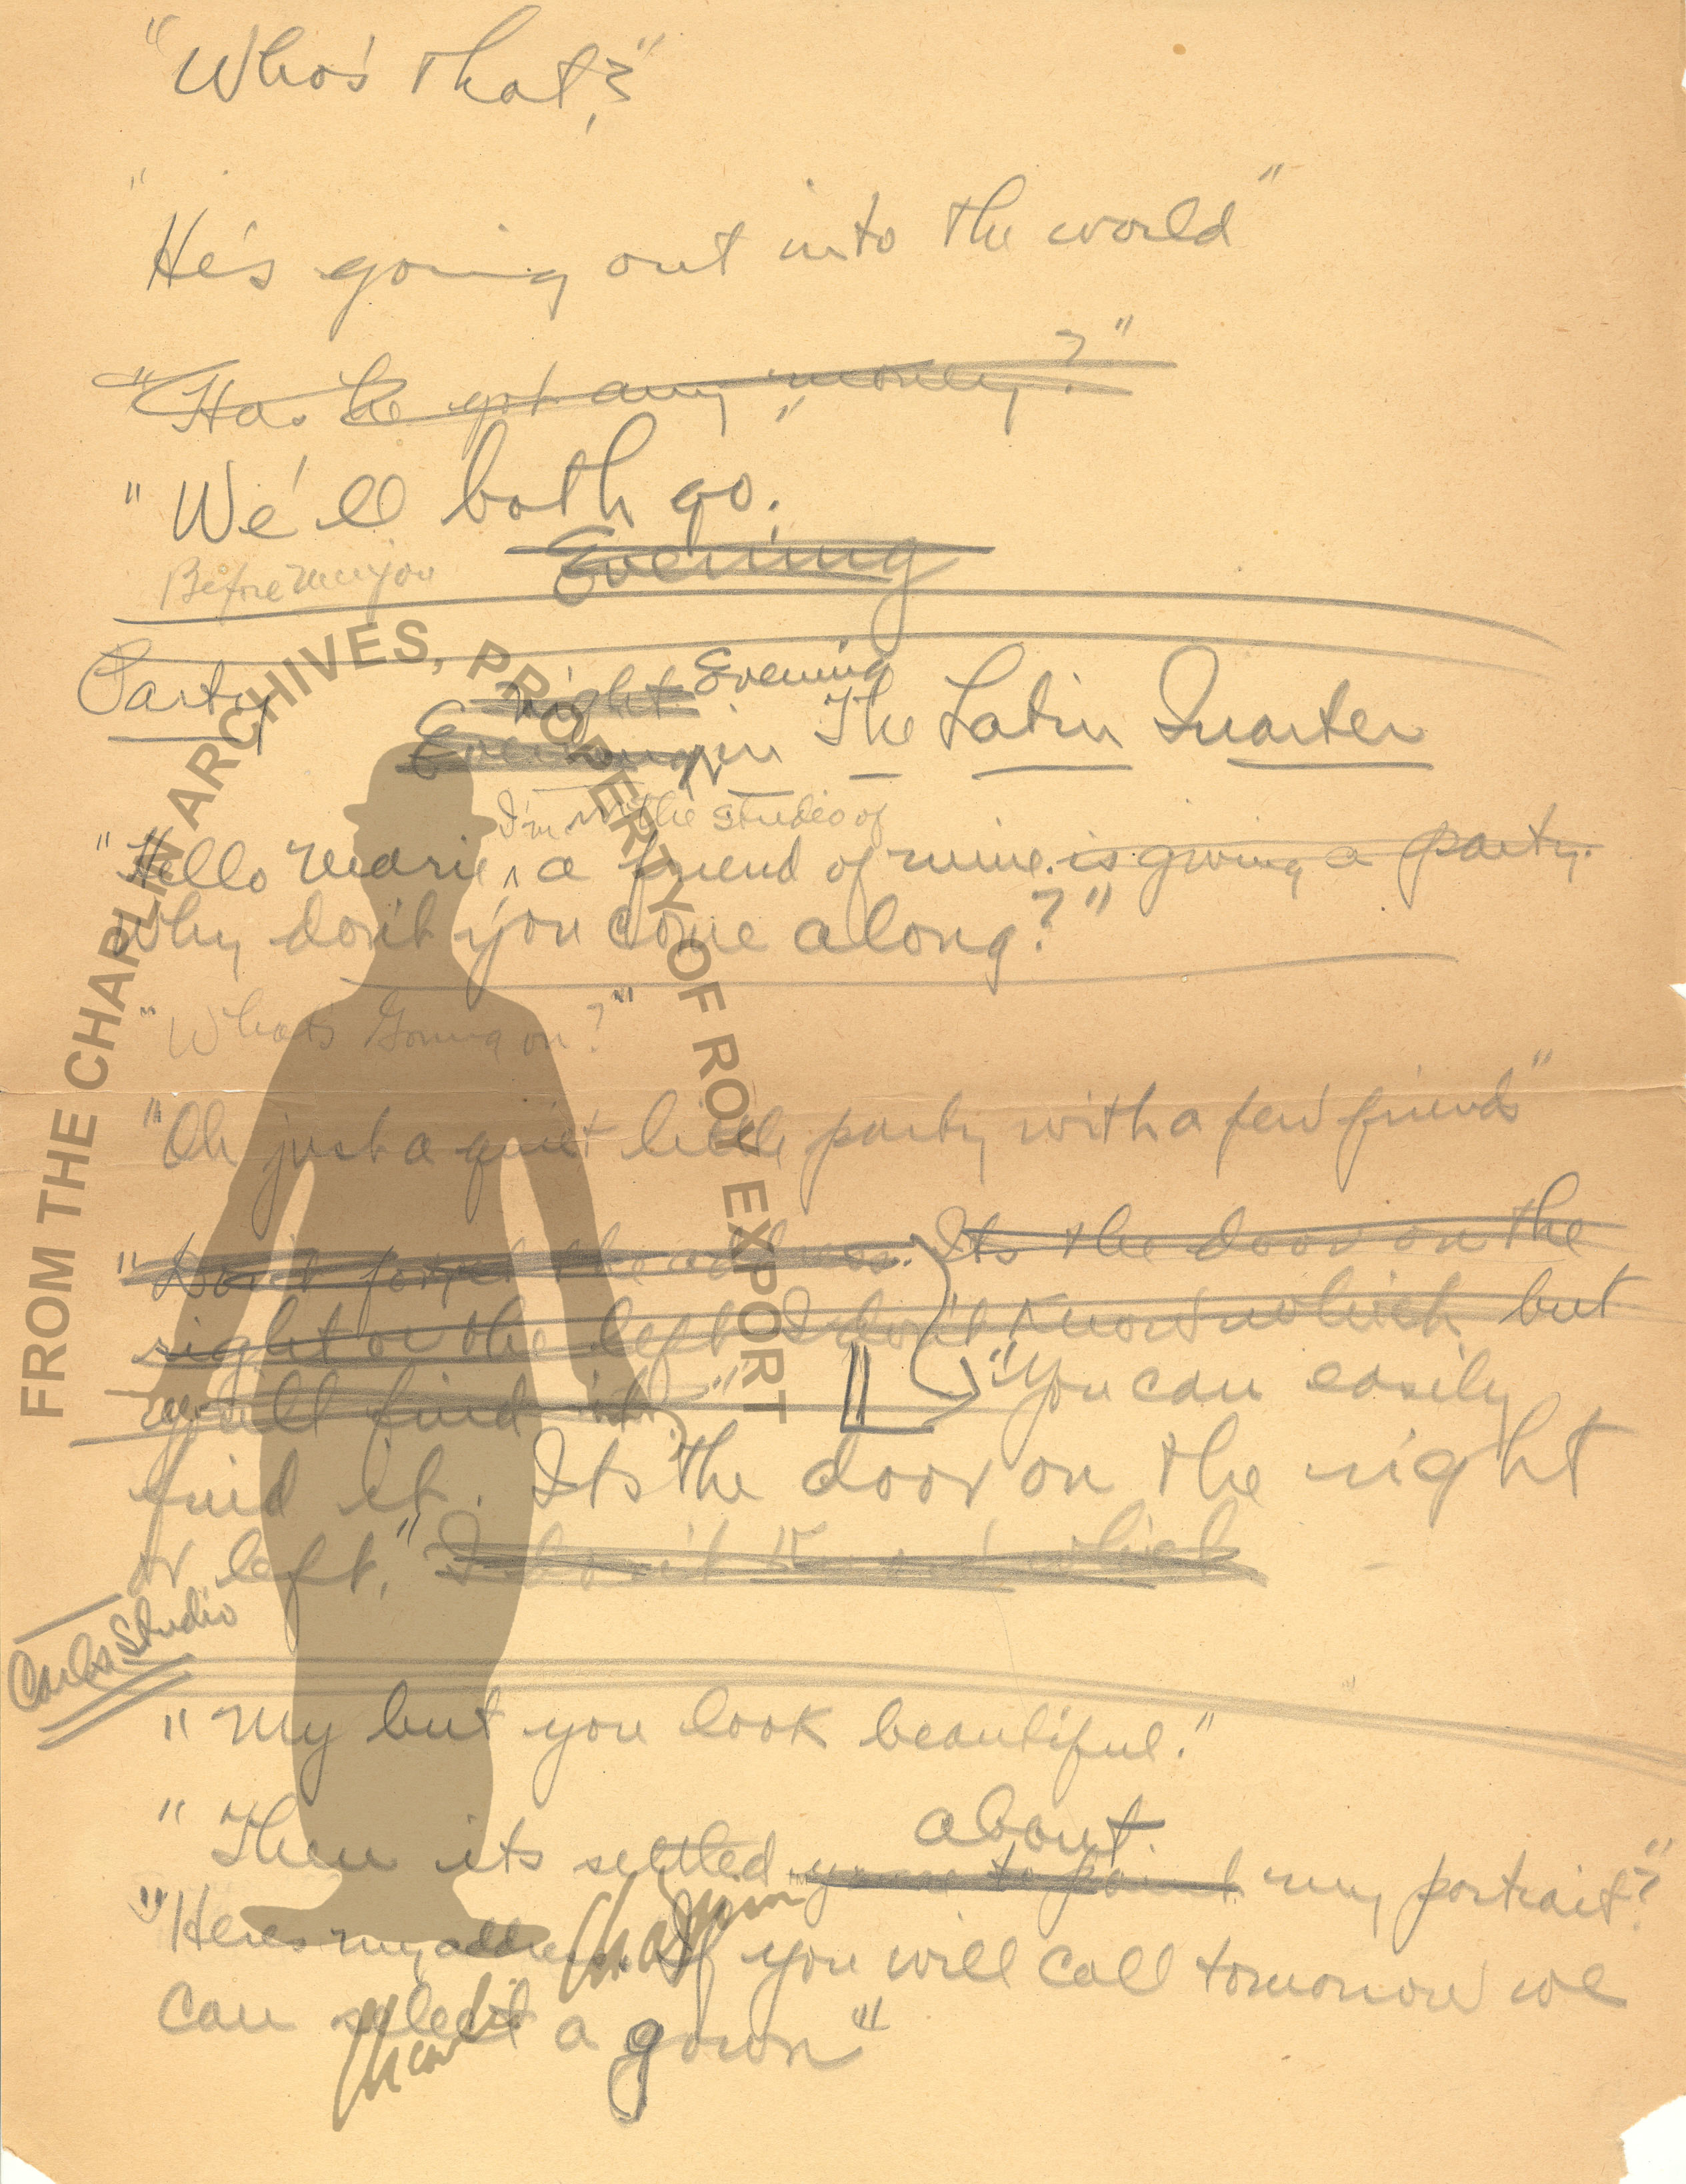 "Who's that?"
"He's going out into the world"
"Has he got any money?"
"We'll both go."
Evening
Before
Party
night Evening
Evening in The Latin Quarter
I'm in the studio of
"Hello Marie, a friend of mine. is giving a party.
Why don't you come along?"
"What's Going on?"
"Oh just a quiet little party with a few friends"
"Don't forget the address. Its the door on the
right or the left I don't know which but
you'll find it."
"You can easily
find it. Its the door on the right
or left." I don't know which
Carlos Studio
"My but you look beautiful."
about
"Then its settled you're to paint my portrait?"
"Heres my address. If you will call tomorrow we
can select a gown"
FROM THE CHAPLIN ARCHIVES, PROPERTY OF ROY EXPORT
Charlie Chaplin